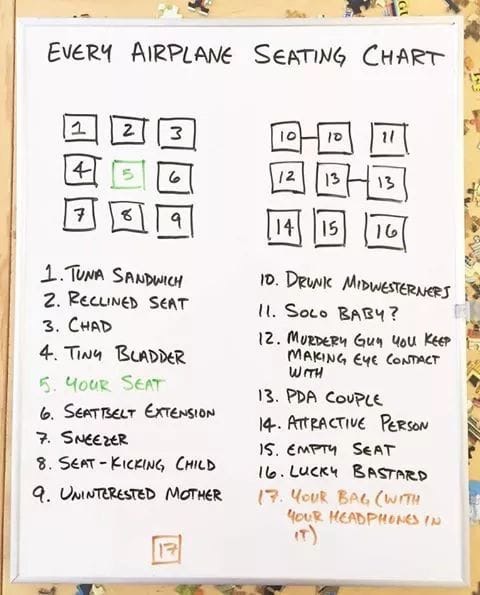 EVERY AIRPLANE SEATING CHART
1 2 3
4 5 6
7 8 9
10 10 11
12 13 13
14 15 16
1. TUNA SANDWICH
2. RECLINED SEAT
3. CHAD
4. TINY BLADDER
5. YOUR SEAT
6. SEATBELT EXTENSION
7. SNEEZER
8. SEAT-KICKING CHILD
9. UNINTERESTED MOTHER
10. DRUNK MIDWESTERNERS
11. SOLO BABY?
12. MURDERY GUY YOU KEEP
MAKING EYE CONTACT
WITH
13. PDA COUPLE
14. ATTRACTIVE PERSON
15. EMPTY SEAT
16. LUCKY BASTARD
17. YOUR BAG (WITH
YOUR HEADPHONES IN
IT)
17